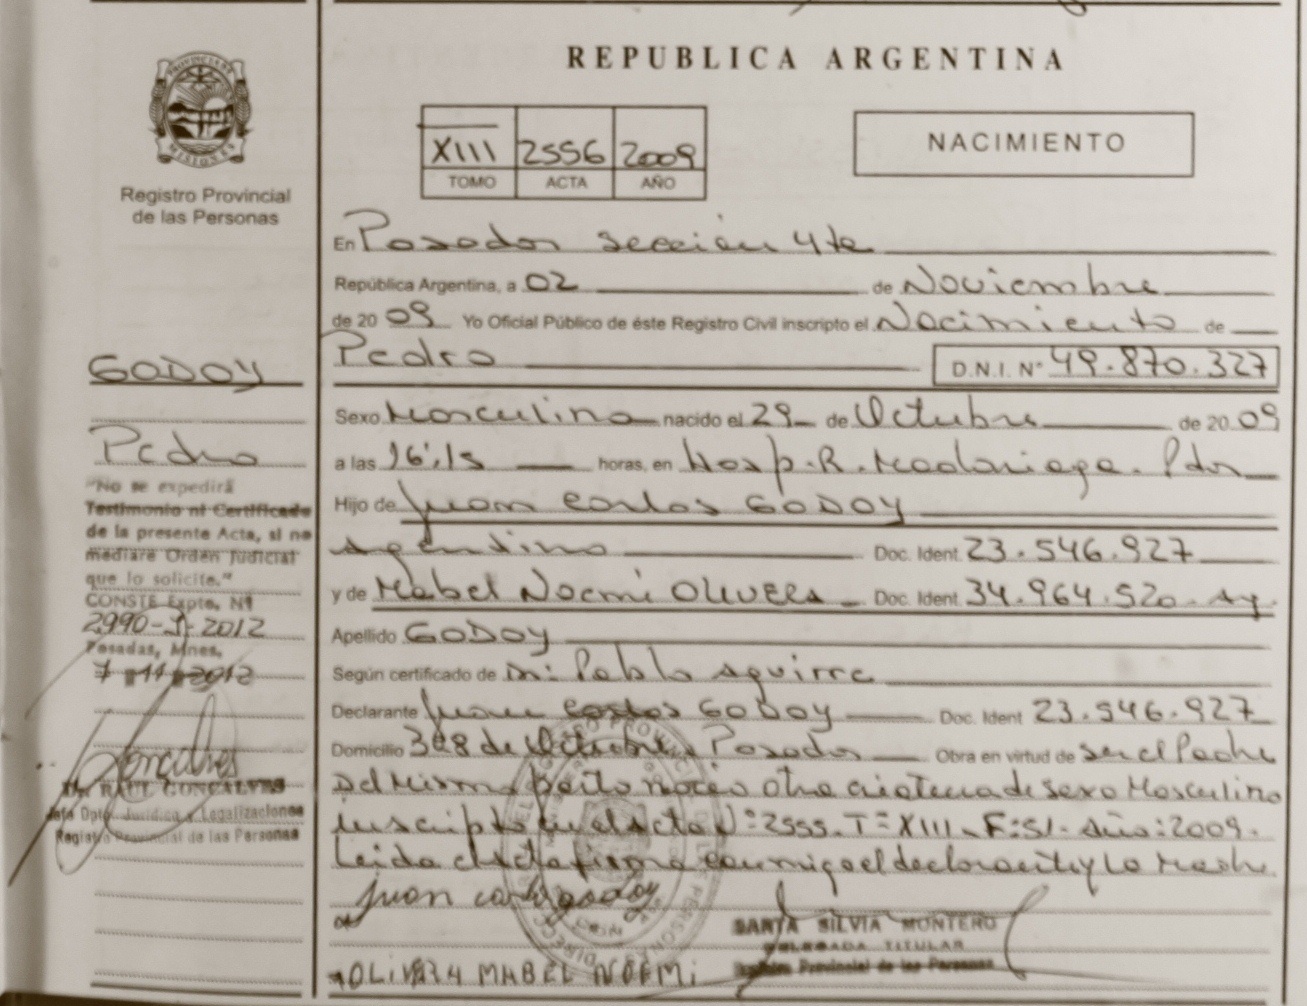 REPUBLICA ARGENTINA
PROVINCIA DE
MISIONES
Registro Provincial
de las Personas
XIII 2556 2009
TOMO ACTA AÑO
NACIMIENTO
En Posadas sección 4ta
República Argentina, a 02 de Noviembre
de 20 09 Yo Oficial Público de éste Registro Civil inscripto el Nacimiento de
Pedro D.N.I. N° 49.870.327
Sexo Masculino nacido el 29 de Octubre de 20 09
a las 16:15 horas, en Hosp. R. Madariaga. Pdas
Hijo de Juan Carlos GODOY
Argentino Doc. Ident. 23.546.927
y de Mabel Noemi OLIVERA Doc. Ident. 34.964.520. Ag.
Apellido GODOY
Según certificado de Dr. Pablo Aguirre
Declarante Juan Carlos GODOY Doc. Ident 23.546.927
Domicilio de Octubre Posadas Obra en virtud de ser el Padre
Del Mismo parto nació otra criatura de sexo Masculino
inscripto en el acta N°=2555. T=XIII. F:51. Año:2009.
Leida el acta firma conmigo el declarante y la Madre
Juan carlos godoy
OLIVARA MABEL NOEMi
SANTA SILVIA MONTERO
DELEGADA TITULAR
Provincial de las Personas
GODOY
Pedro
"No se expedirá
Testimonio ni Certificado
de la presente Acta, si no
mediare Orden Judicial
que lo solicite."
CONSTE Expte. Nº
2990-J-2012
Posadas, Mnes,
7 11 2012
Goncalves
Dr. RAUL GONCALVES
Jefe Dpto. Jurídica y Legalizaciones
Registro Provincial de las Personas